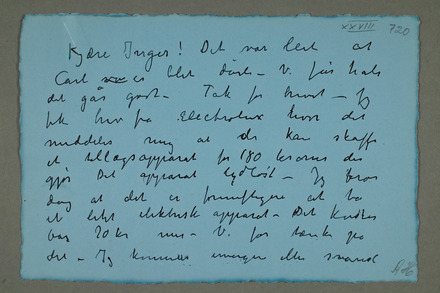 XXVIII 720
Kjære Inger! Det var leit at
Carl er blit dårlig. V. får håbe
det går godt. Tak for brevet. Jeg
fik brev fra Electrolux hvor det
meddeles mig at de kan skaffe
et tillægsapparat for 180 kroner der
gjør det apparat lydløst. Jeg tror
dog at det er fornuftigere at ha
et lite elektrisk apparat. Det koster
bar 20 kr mer. V. får tænke på
det. Jeg kommer imorgen eller